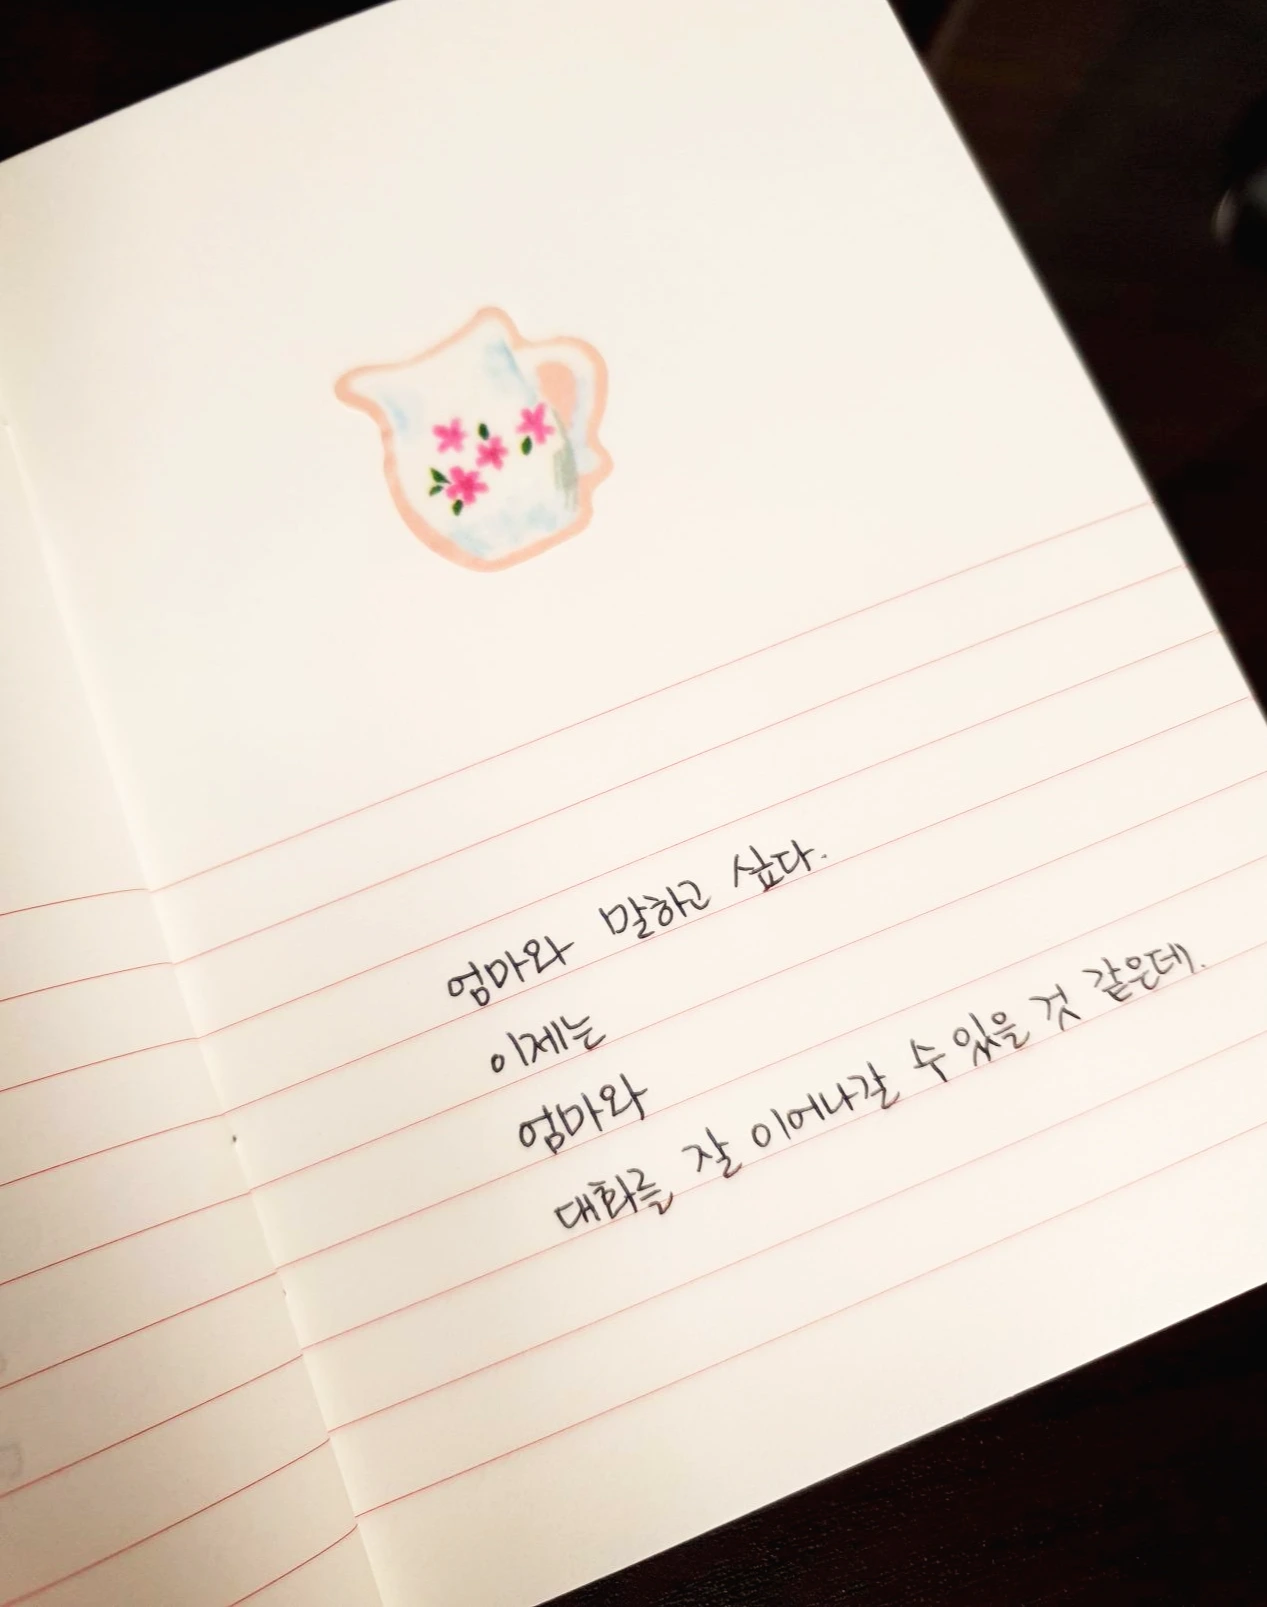 엄마와 말하고 싶다.
이제는
엄마와
대화를 잘 이어나갈 수 있을 것 같은데.